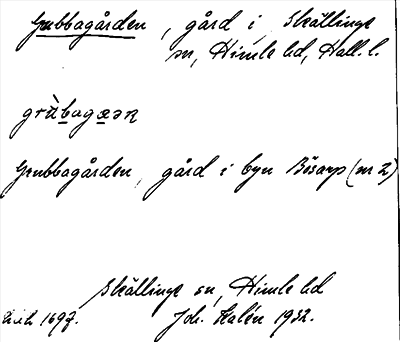 Grubbagården, gård i Skällinge
sn, Himle hd, Hall. l.
grùbagæən
Grubbagården, gård i byn Bösarp (nr 2)
Skällinge sn, Himle hd
1697. Joh. Kalén 1932.